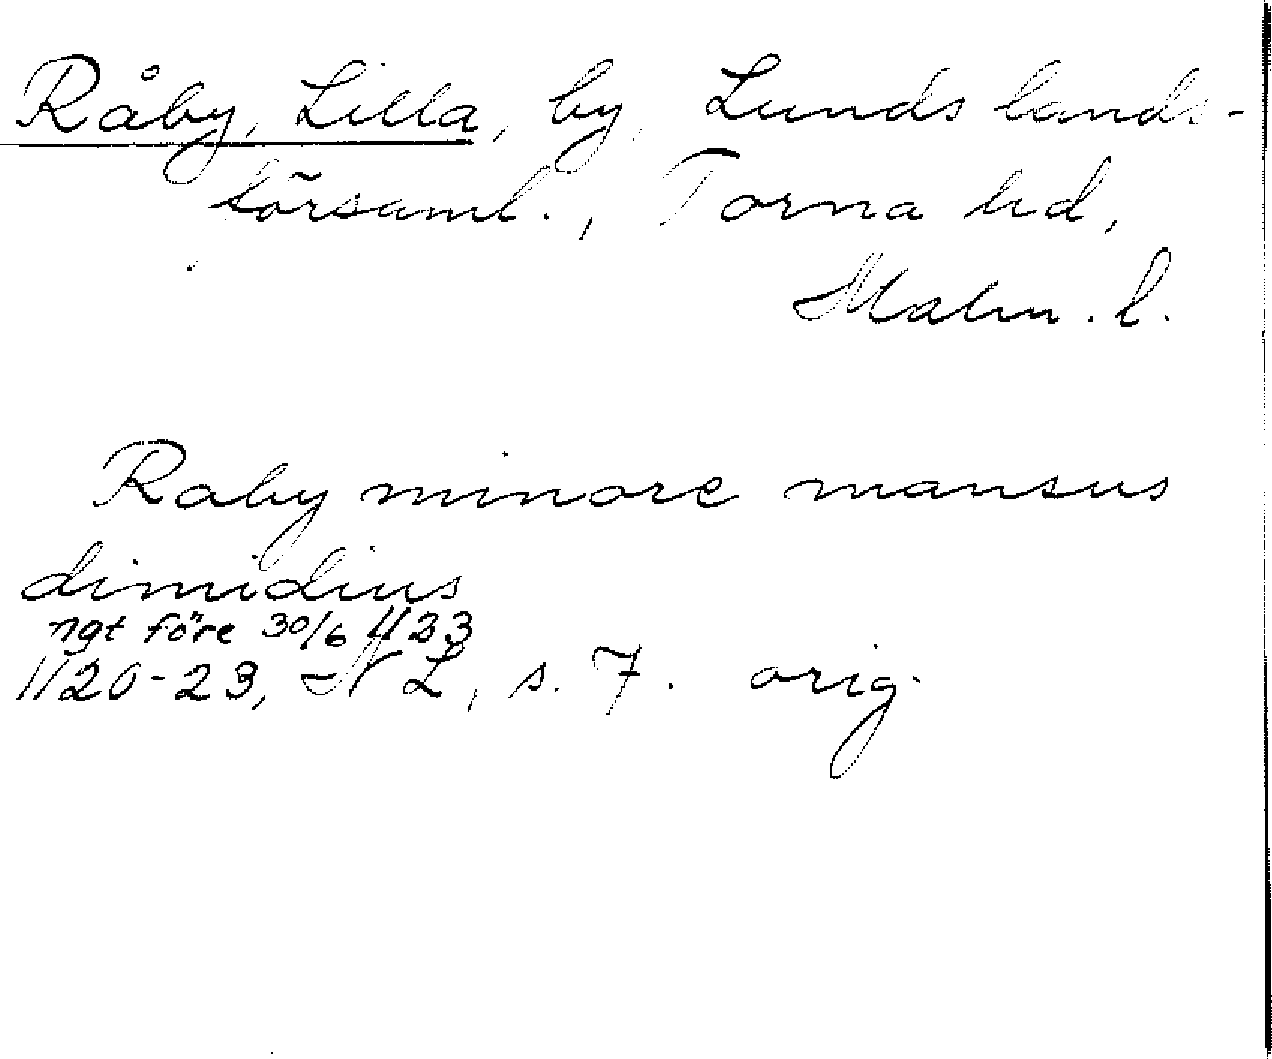 Råby, Lilla, by, Lunds lands-
församl., Torna hd,
Malm. l.
Raby minore mansus
dimidius
ngt före 30/6 1123
1120-23, NL, s. 7. orig.